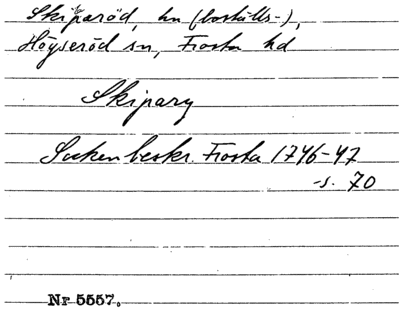 Skiparöd, hn (boställs-),
Högseröd sn, Frosta hd
Skipary
Sockenbeskr. Frosta 1746-47
s. 70
Nr 5557.